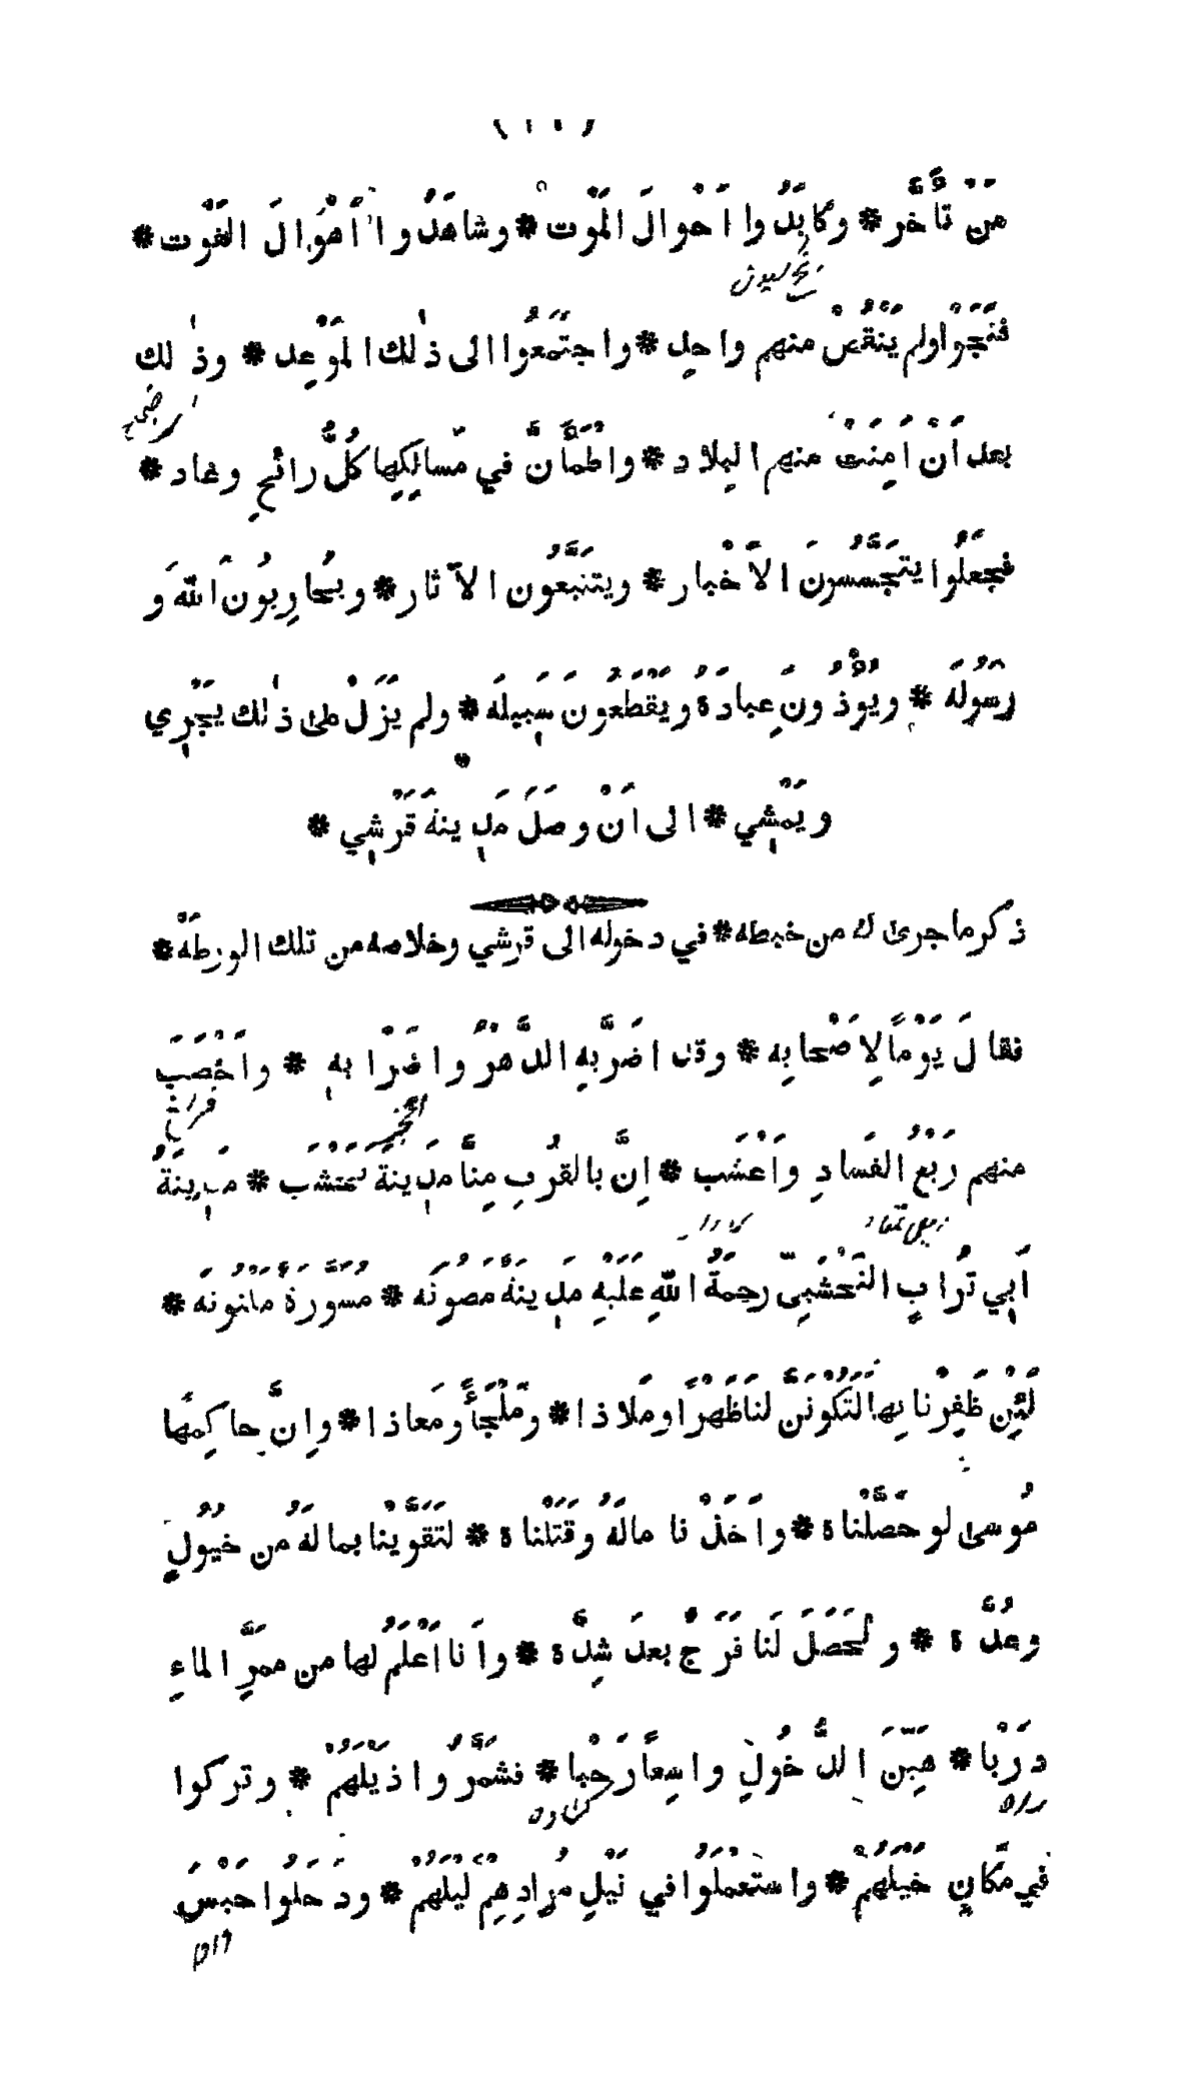 مَنْ تَأَخَّر * وكابَدُوا اَحْوالَ المَوْت * وشاهَدُوا اَهْوالَ الفَوْت *
فنَجَوْا ولم يَنْقُصْ منهم واحِد * واجتَمَعُوا الى ذٰلك المَوْعِد * وذٰلك
بعد اَنْ اَمِنَتْ منهم البِلاد * واطْمَأَنَّ في مَسالِكِها كُلُّ رائحٍ وغاد *
فجَعَلُوا يتَجَسَّسُونَ الاَخْبار * ويتتبَّعُون الآثار * ويُحارِبُونَ اللهَ و
رَسُولَه * ويُؤْذُونَ عِبادَهُ ويَقْطَعُونَ سَبِيلَه * ولم يَزَلْ على ذٰلك يَجْرِي
ويَمْشِي * الى اَنْ وصَلَ مَدِينةَ قَرْشِي *
ذكر ما جرى له من خبطه * في دخوله الى قرشي وخلاصه من تلك الورطَة *
فقالَ يَوْماً لِاَصْحابِه * وقد اضَرَّ بهِ الدَّهْرُ واضَرّا بِه * واَخْصَبَ
منهم رَبْعُ الفَسادِ واَعْشَب * اِنَّ بالقُرْبِ مِنّا مَدِينةَ نَخْشَب * مَدِينَةُ
اَبِي تُرابٍ النَخْشَبِيّ رحمَةُ اللهِ عَلَيْهِ مَدِينةٌ مَصُونَه * مُسَوَّرةٌ مامُونَه *
لَئِنْ ظَفِرْنا بِها لَتَكُونَنَّ لنا ظَهْراً ومَلاذا * ومَلْجَأً ومَعاذا * واِنَّ حاكِمَها
مُوسى لو حَصَّلْناه * واَخَذْنا مالَهُ وقَتَلْناه * لتَقَوَّيْنا بما لَهُ من خُيُولٍ
وعُدَّه * ولَحَصَلَ لَنا فَرَجٌ بعدَ شِدَّه * واَنا اَعْلَمُ لها من ممَرِّ الماءِ
دَرْبا * هَيِّنَ الدُّخُولِ واسِعاً رَحْبا * فشَمَّرُوا ذَيْلَهُمْ * وتركوا
في مَكانٍ خَيْلَهُمْ * واستَعْمَلُوا في نَيْلِ مُرادِهِمْ لَيْلَهُمْ * ودَخَلُوا حَبْسَ